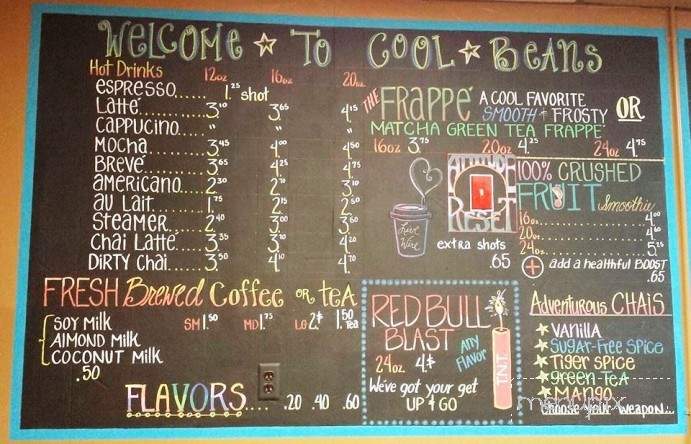 WELCOME TO COOL BEANS
Hot Drinks 12oz 16oz 20oz
espresso...... 1.25 shot
Latte...... 3.10 3.65 4.15
Cappucino..... " " "
Mocha...... 3.45 4.00 4.50
Breve...... 3.65 4.25 4.75
americano.... 2.30
au Lait...... 1.75 2.15
Steamer..... 2.40 3.00 3.50
Chai Latte... 3.35 4.20
Dirty Chai.... 3.50 4.10 4.70
FRESH Brewed Coffee or tea
SM 1.50 MD 1.75 LG 2.- 1.50 Tea
Soy Milk
Almond Milk
Coconut Milk
.50
FLAVORS.... .20 .40 .60
THE FRAPPÉ A COOL FAVORITE
SMOOTH + FROSTY OR
MATCHA GREEN TEA FRAPPE
16oz 3.75 20oz 4.25 24oz 4.75
ATTITUDE
RESET
Live Wire
extra shots
.65
100% CRUSHED
FRUIT Smoothie
16oz 4.00
20oz 4.60
24oz 5.25
add a healthful BOOST
.65
RED BULL
BLAST
Any Flavor
24oz 4.-
We've got your get
UP & GO
T.N.T.
Adventurous CHAIS
Vanilla
Sugar-Free Spice
Tiger Spice
green Tea
Mango
Choose your weapon...